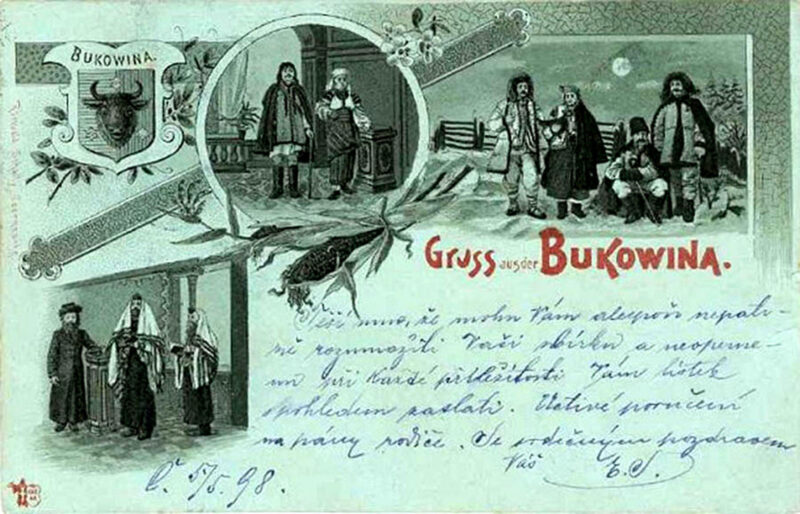 BUKOWINA.
GRUSS aus der BUKOWINA.
Těší mne, že mohu Vám alespoň nepatr-
ně rozmnožiti Vaši sbírku a neopome-
nu při každé příležitosti Vám lístek
pohledem zaslati. Uctivé poručení
na pány rodiče. Se srdečným pozdravem
Váš E. S.
Č. 5/5. 98.